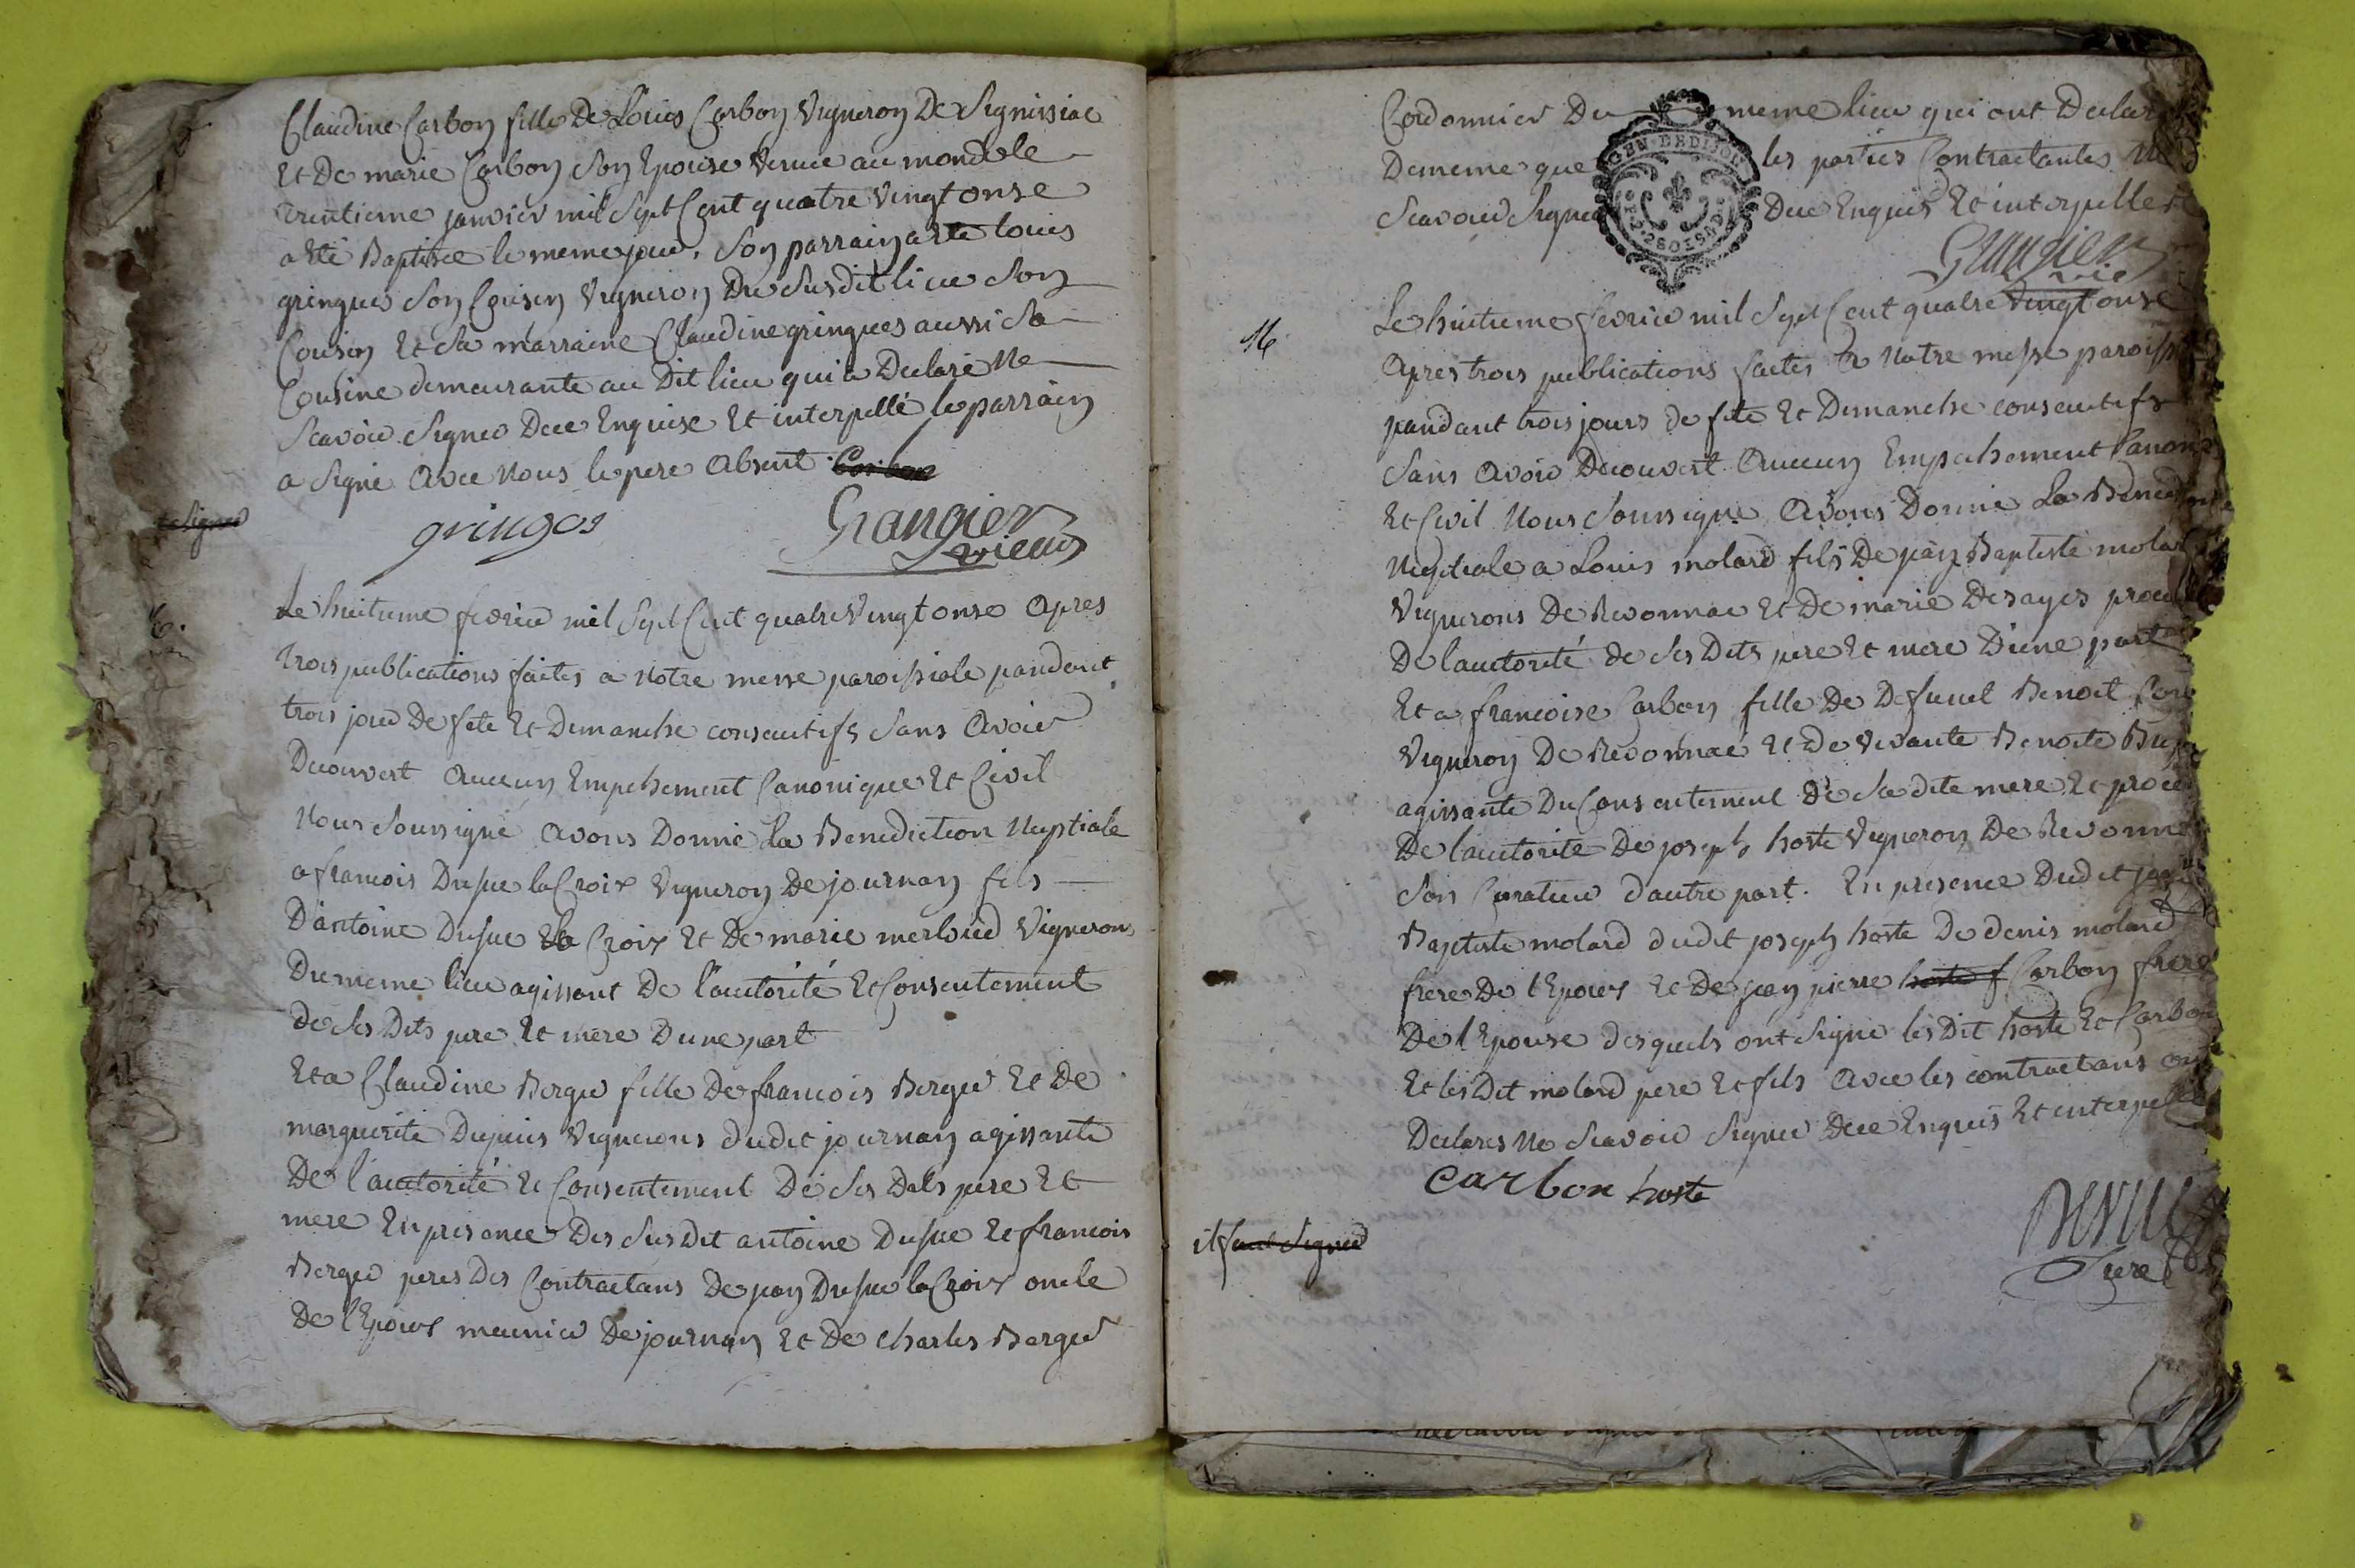 Claudine Carbon fille De Louis Carbon Vigneron De Signissiac
Et De marie Carbon Son Epouse Venue au monde le
trentieme janvier mil Sept Cent quatre Vingt onse
a Eté Baptisée le meme jour. Son parrain a Eté louis
gringues Son Cousin Vigneron Du Susdit lieu Son
Cousin Et Sa marraine Claudine gringues aussi Sa
Cousine demeurante au Dit lieu qui a Declaré Ne
Scavoir Signer De ce Enquise Et interpellé le parrain
a Signé Avec Nous le pere Absent Carbon
Signer
gringos
Grangier
vicaire
6.
Le huitieme fevrier mil Sept Cent quatre Vingt onse Apres
trois publications faites a Notre messe paroissiale pandant
trois jour De fete Et Dimanche consecutifs Sans Avoir
Decouvert Aucun Empechement Canonique Et Civil
Nous Soussigné avons Donné La Benediction Nuptiale
a francois Dusuc la Croix Vigneron De journan fils
D'antoine Dusuc la Croix Et De marie merloud Vignerons
Du meme lieu agissant De l'autorité Et Consentement
de Ses Dits pere Et mere D'une part
Et a Claudine Berger fille De francois Berger Et De
marguerite Dupuis Vignerons dudit journan agissante
De l'autorité Et Consentement De Ses Dits pere Et
mere En presence Des Susdit antoine Dusuc Et francois
Berger peres Des Contractans De jan Dusuc la Croix oncle
De l'Epoux meunier De journan Et De Charles Berger
Cordonnier Du meme lieu qui ont Declar
De meme que les parties Contractantes Ne
Scavoir Signer De ce Enquis Et interpelles
GEN DE DIJON
Grangier
vic
16
Le huitieme fevrier mil Sept Cent quatre Vingt onse
Apres trois publications faites a Notre messe paroiss
pandant trois jours de fete Et Dimanche consecutifs
Sans Avoir Decouvert Aucun Empechement Canoni
Et Civil Nous Soussigné Avons Donné La Benedi
Nuptiale a Louis molard fils De jan Baptiste molard
Vignerons De Revonnac Et De marie Desayes proced
De l'autorité de Ses Dits pere Et mere D'une part
Et a francoise Carbon fille De Defunct Benoit Car
Vigneron De Revonnac Et De Vivante Benoite
agissante Du Consentement De Sa dite mere Et proced
De l'autorité De joseph hoste Vigneron De Revonn
Son Curateur d'autre part. En presence Dudit jan
Baptiste molard dudit joseph hoste De denis molard
frere De l'Epoux Et De jan pierre hoste f Carbon frere
De l'Epouse desquels ont Signé les Dit hoste Et Carbon
Et les Dit molard pere Et fils Avec les contractans ont
Declarés Ne Scavoir Signer De ce Enquis Et interpell
carbon hoste
il faut Signer
Curé